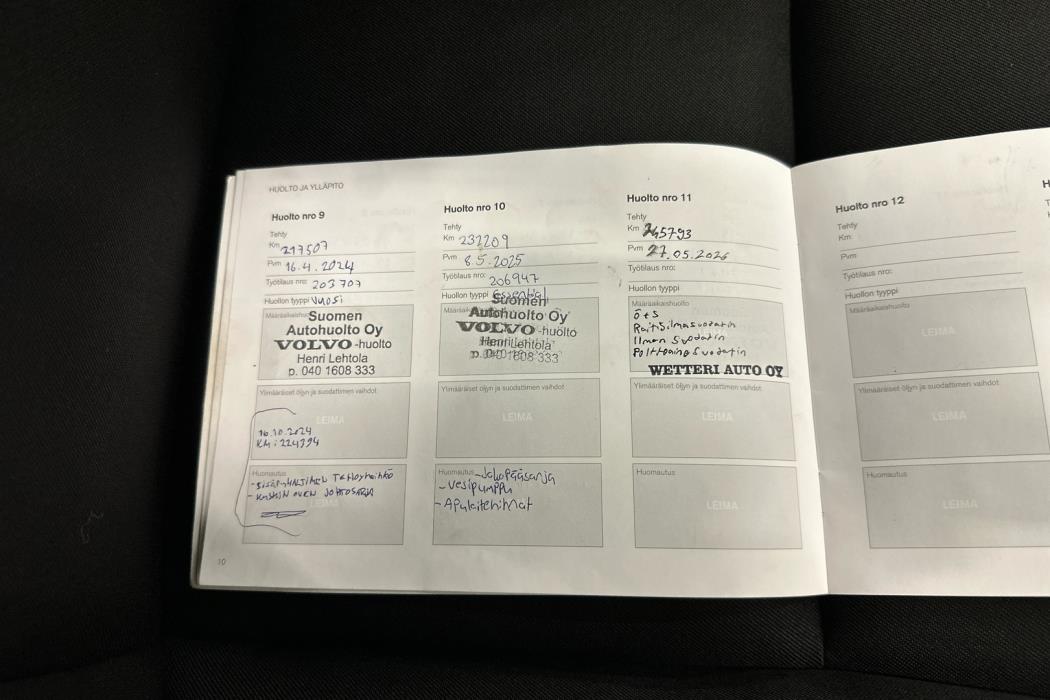 HUOLTO JA YLLÄPITO
Huolto nro 9
Tehty
Km 217507
Pvm 16.4.2024
Työtilaus nro: 203707
Huollon tyyppi Vuosi
Määräaikaishuolto
Suomen
Autohuolto Oy
VOLVO-huolto
Henri Lehtola
p. 040 1608 333
Ylimääräiset öljyn ja suodattimen vaihdot
LEIMA
16.10.2024
KM: 224394
Huomautus
- KASKIN OVEN JOHTOSARJA
LEIMA
10
Huolto nro 10
Tehty
Km 232209
Pvm 8.5.2025
Työtilaus nro: 206947
Huollon tyyppi Essential
Suomen
Autohuolto Oy
VOLVO-huolto
Henri Lehtola
p. 040 1608 333
Ylimääräiset öljyn ja suodattimen vaihdot
LEIMA
Huomautus - Jakopääsarja
- Vesipumppu
- Apulaitehihnat
Huolto nro 11
Tehty
Km 245793
Pvm 27.05.2026
Työtilaus nro:
Huollon tyyppi
Määräaikaishuolto
ö+s
Raitisilmasuodatin
Ilman suodatin
Polttoaine suodatin
WETTERI AUTO OY
Ylimääräiset öljyn ja suodattimen vaihdot
LEIMA
Huomautus
LEIMA
Huolto nro 12
Tehty
Km:
Pvm
Työtilaus nro:
Huollon tyyppi
Määräaikaishuolto
LEIMA
Ylimääräiset öljyn ja suodattimen vaihdot
LEIMA
Huomautus
LEIMA